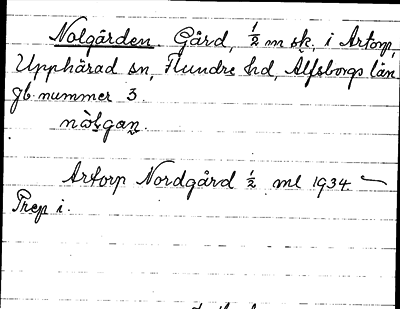 Nolgården. Gård, ½ m sk. i Artorp,
Upphärad sn, Flundre hd, Älfsborgs län
Jb. nummer 3.
nòlgan.
Artorp Nordgård ½ ml 1934 ~
Prep i.